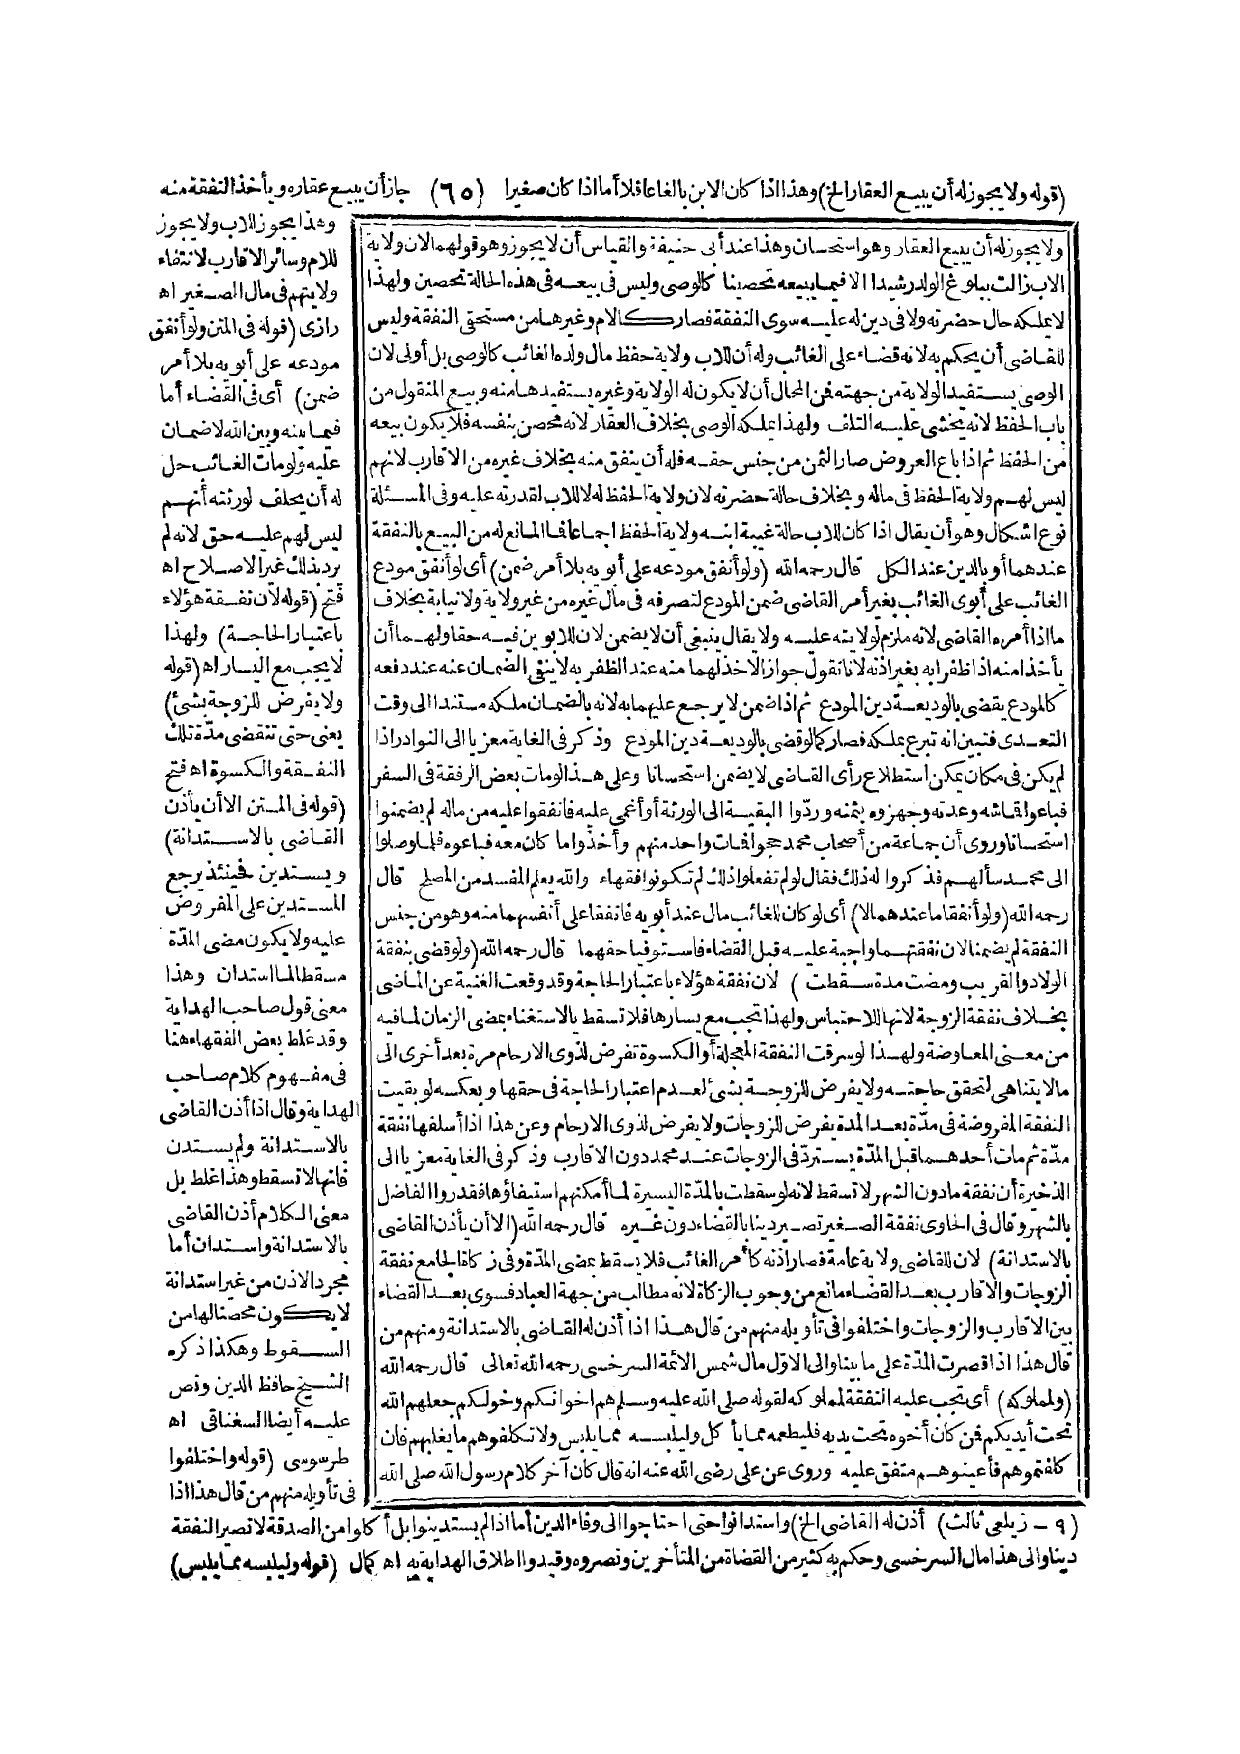 (قوله ولا يجوز له أن يبيع العقار الخ) وهذا اذا كان الابن بالغا عاقلا أما اذا كان صغيرا (٦٥) جاز أن يبيع عقاره ويأخذ النفقة منه
ولا يجوز له أن يبيع العقار وهو استحسان وهذا عند أبى حنيفة والقياس أن لا يجوز وهو قولهما لان ولاية
الاب زالت ببلوغ الولد رشيدا الا فيما يبيعه تحصينا كالوصى وليس فى بيعه فى هذه الحالة تحصين ولهذا
لا يملكه حال حضرته ولا فى دين له عليه سوى النفقة فصار كالام وغيرها من مستحقى النفقة وليس
للقاضى أن يحكم به لانه قضاء على الغائب وله أن للاب ولاية حفظ مال ولده الغائب كالوصى بل أولى لان
الوصى يستفيد الولاية من جهته فمن المحال أن لا يكون له الولاية وغيره يستفيدها منه وبيع المنقول من
باب الحفظ لانه يخشى عليه التلف ولهذا يملكه الوصى بخلاف العقار لانه محصن بنفسه فلا يكون بيعه
من الحفظ ثم اذا باع العروض صار الثمن من جنس حقه فله أن ينفق منه بخلاف غيره من الاقارب لانهم
ليس لهم ولاية الحفظ فى ماله وبخلاف حالة حضرته لان ولاية الحفظ له لا للاب لقدرته عليه وفى المسئلة
نوع اشكال وهو أن يقال اذا كان للاب حالة غيبة ابنه ولاية الحفظ اجماعا فما المانع له من البيع بالنفقة
عندهما أو بالدين عند الكل قال رحمه الله (ولو أنفق مودعه على أبويه بلا أمر ضمن) أى لو أنفق مودع
الغائب على أبوى الغائب بغير أمر القاضى ضمن المودع لتصرفه فى مال غيره من غير ولاية ولا نيابة بخلاف
ما اذا أمره القاضى لانه ملزم لولايته عليه ولا يقال ينبغى أن لا يضمن لان للابوين فيه حقا ولهما أن
يأخذا منه اذا ظفرا به بغير اذنه لانا نقول جواز الاخذ لهما منه عند الظفر به لا ينفى الضمان عنه عند دفعه
كالمودع يقضى بالوديعة دين المودع ثم اذا ضمن لا يرجع عليهما به لانه بالضمان ملكه مستندا الى وقت
التعدى فتبين انه تبرع بملكه فصار كما لو قضى بالوديعة دين المودع وذكر فى الغاية معزيا الى النوادر اذا
لم يكن فى مكان يمكن استطلاع رأى القاضى لا يضمن استحسانا وعلى هذا لو مات بعض الرفقة فى السفر
فباعوا قماشه وعدته وجهزوه بثمنه وردوا البقية الى الورثة أو أغمى عليه فانفقوا عليه من ماله لم يضمنوا
استحسانا وروى أن جماعة من أصحاب محمد حجوا فمات واحد منهم وأخذوا ما كان معه فباعوه فلما وصلوا
الى محمد سألهم فذكروا له ذلك فقال لو لم تفعلوا ذلك لم تكونوا فقهاء والله يعلم المفسد من المصلح قال
رحمه الله (ولو أنفقا ما عندهما لا) أى لو كان للغائب مال عند أبويه فانفقا على أنفسهما منه وهو من جنس
النفقة لم يضمنا لان نفقتهما واجبة عليه قبل القضاء فاستوفيا حقهما قال رحمه الله (ولو قضى بنفقة
الولاد والقريب ومضت مدة سقطت) لان نفقة هؤلاء باعتبار الحاجة وقد وقعت الغنية عن الماضى
بخلاف نفقة الزوجة لانها للاحتباس ولهذا تجب مع يسارها فلا تسقط بالاستغناء بمضى الزمان لما فيه
من معنى المعاوضة ولهذا لو سرقت النفقة المعجلة أو الكسوة تفرض لذوى الارحام مرة بعد أخرى الى
ما لا يتناهى لتحقق حاجته ولا يفرض للزوجة بشئ لعدم اعتبار الحاجة فى حقها وبعكسه لو بقيت
النفقة المفروضة فى مدة بعد المدة يفرض للزوجات ولا يفرض لذوى الارحام وعن هذا اذا أسلفها نفقة
مدة ثم مات أحدهما قبل المدة يسترد فى الزوجات عند محمد دون الاقارب وذكر فى الغاية معزيا الى
الذخيرة أن نفقة ما دون الشهر لا تسقط لانه لو سقطت بالمدة اليسيرة لما أمكنهم استيفاؤها فقدروا الفاضل
بالشهر وقال فى الحاوى نفقة الصغير تصير دينا بالقضاء دون غيره قال رحمه الله (الا أن يأذن القاضى
بالاستدانة) لان للقاضى ولاية عامة فصار اذنه كأمر الغائب فلا يسقط بمضى المدة وفى زكاة الجامع نفقة
الزوجات والاقارب بعد القضاء مانع من وجوب الزكاة لانه مطالب من جهة العباد فسوى بعد القضاء
بين الاقارب والزوجات واختلفوا فى تأويله منهم من قال هذا اذا أذن له القاضى بالاستدانة ومنهم من
قال هذا اذا قصرت المدة على ما بينا والى الاول مال شمس الائمة السرخسى رحمه الله تعالى قال رحمه الله
(ولمملوكه) أى يجب عليه النفقة لمملوكه لقوله صلى الله عليه وسلم هم اخوانكم وخولكم جعلهم الله
تحت أيديكم فمن كان أخوه تحت يديه فليطعمه مما يأكل وليلبسه مما يلبس ولا تكلفوهم ما يغلبهم فان
كلفتموهم فأعينوهم متفق عليه وروى عن على رضى الله عنه انه قال كان آخر كلام رسول الله صلى الله
وهذا يجوز للاب ولا يجوز
للام وسائر الاقارب لانتفاء
ولايتهم فى مال الصغير اه
رازى (قوله فى المتن ولو أنفق
مودعه على أبويه بلا أمر
ضمن) أى فى القضاء أما
فيما بينه وبين الله لا ضمان
عليه ولو مات الغائب حل
له أن يحلف لورثته أنهم
ليس لهم عليه حق لانه لم
يرد بذلك غير الاصلاح اه
فتح (قوله لان نفقة هؤلاء
باعتبار الحاجة) ولهذا
لا يجب مع اليسار اه (قوله
ولا يفرض للزوجة بشئ)
يعنى حتى تنقضى مدة تلك
النفقة والكسوة اه فتح
(قوله فى المتن الا أن يأذن
القاضى بالاستدانة)
ويستدين فحينئذ يرجع
المستدين على المفروض
عليه ولا يكون مضى المدة
مسقطا لما استدان وهذا
معنى قول صاحب الهداية
وقد غلط بعض الفقهاء هنا
فى مفهوم كلام صاحب
الهداية وقال اذا أذن القاضى
بالاستدانة ولم يستدن
فانها لا تسقط وهذا غلط بل
معنى الكلام أذن القاضى
بالاستدانة واستدان أما
مجرد الاذن من غير استدانة
لا يكون محصنا لها من
السقوط وهكذا ذكره
الشيخ حافظ الدين ونص
عليه أيضا السغناقى اه
طرسوسى (قوله واختلفوا
فى تأويله منهم من قال هذا اذا
(٩ - زيلعى ثالث) أذن له القاضى الخ) واستدانوا حتى احتاجوا الى وفاء الدين أما اذا لم يستدينوا بل أكلوا من الصدقة لا تصير النفقة
دينا والى هذا مال السرخسى وحكم به كثير من القضاة من المتأخرين ونصروه وقيدوا اطلاق الهداية به اه كمال (قوله وليلبسه مما يلبس)